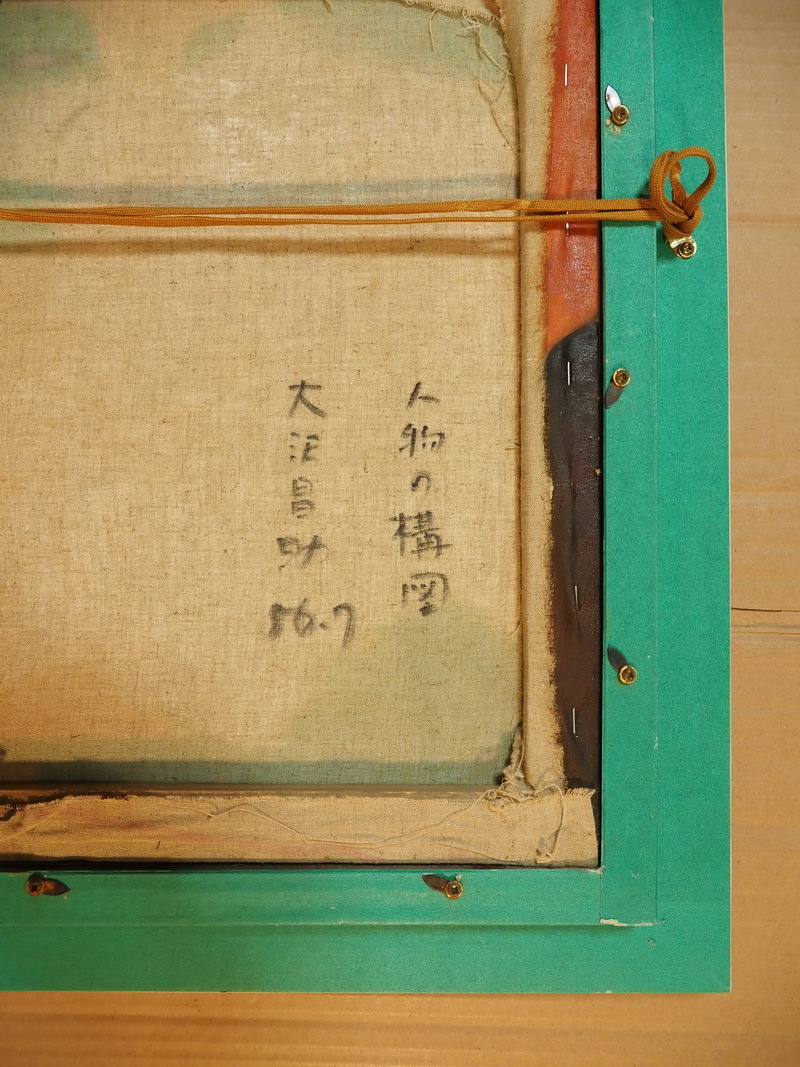 人物の構図
大沢昌助
56.7